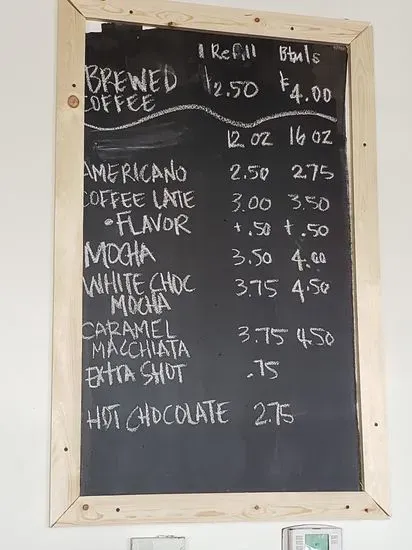 1 Refill Btuls
BREWED $2.50 $4.00
COFFEE
12 OZ 16 OZ
AMERICANO 2.50 2.75
COFFEE LATE 3.00 3.50
• FLAVOR +.50 +.50
MOCHA 3.50 4.00
WHITE CHOC 3.75 4.50
MOCHA
CARAMEL 3.75 4.50
MACCHIATA
EXTRA SHOT .75
HOT CHOCOLATE 2.75